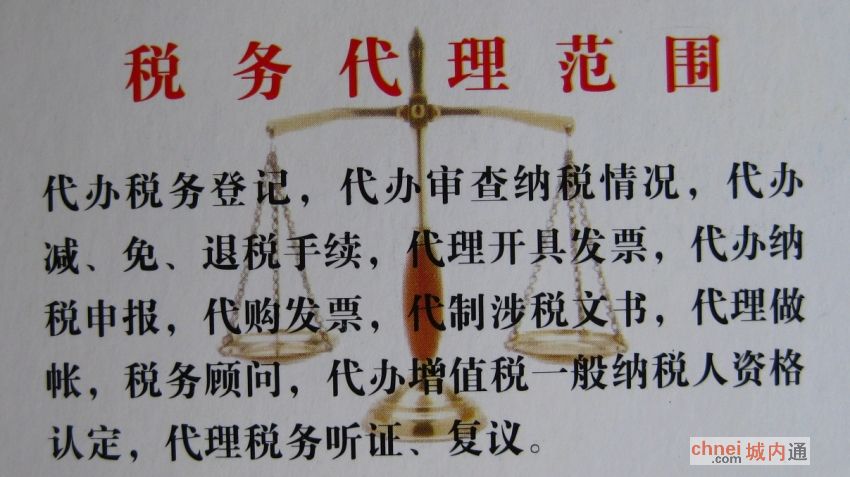 税务代理范围
代办税务登记，代办审查纳税情况，代办
减、免、退税手续，代理开具发票，代办纳
税申报，代购发票，代制涉税文书，代理做
帐，税务顾问，代办增值税一般纳税人资格
认定，代理税务听证、复议。
chnei城内通
.com